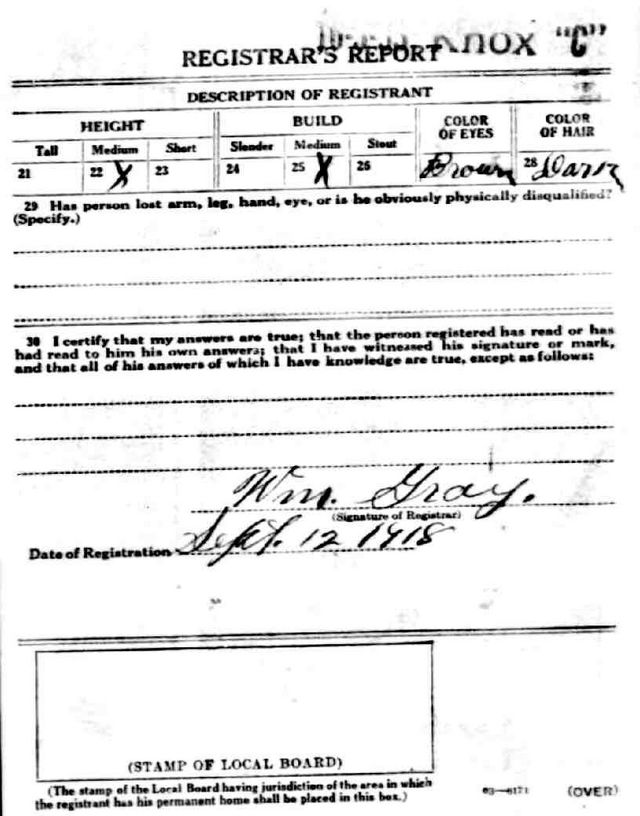 KNOX "C"
REGISTRAR'S REPORT
DESCRIPTION OF REGISTRANT
HEIGHT BUILD COLOR OF EYES COLOR OF HAIR
Tall Medium Short Slender Medium Stout
21 22 X 23 24 25 X 26 Brown 28 Dark
29 Has person lost arm, leg, hand, eye, or is he obviously physically disqualified?
(Specify.)
30 I certify that my answers are true; that the person registered has read or has
had read to him his own answers; that I have witnessed his signature or mark,
and that all of his answers of which I have knowledge are true, except as follows:
Wm. Gray.
(Signature of Registrar)
Date of Registration Sept. 12 1918
(STAMP OF LOCAL BOARD)
(The stamp of the Local Board having jurisdiction of the area in which
the registrant has his permanent home shall be placed in this box.)
03—6171 (OVER)